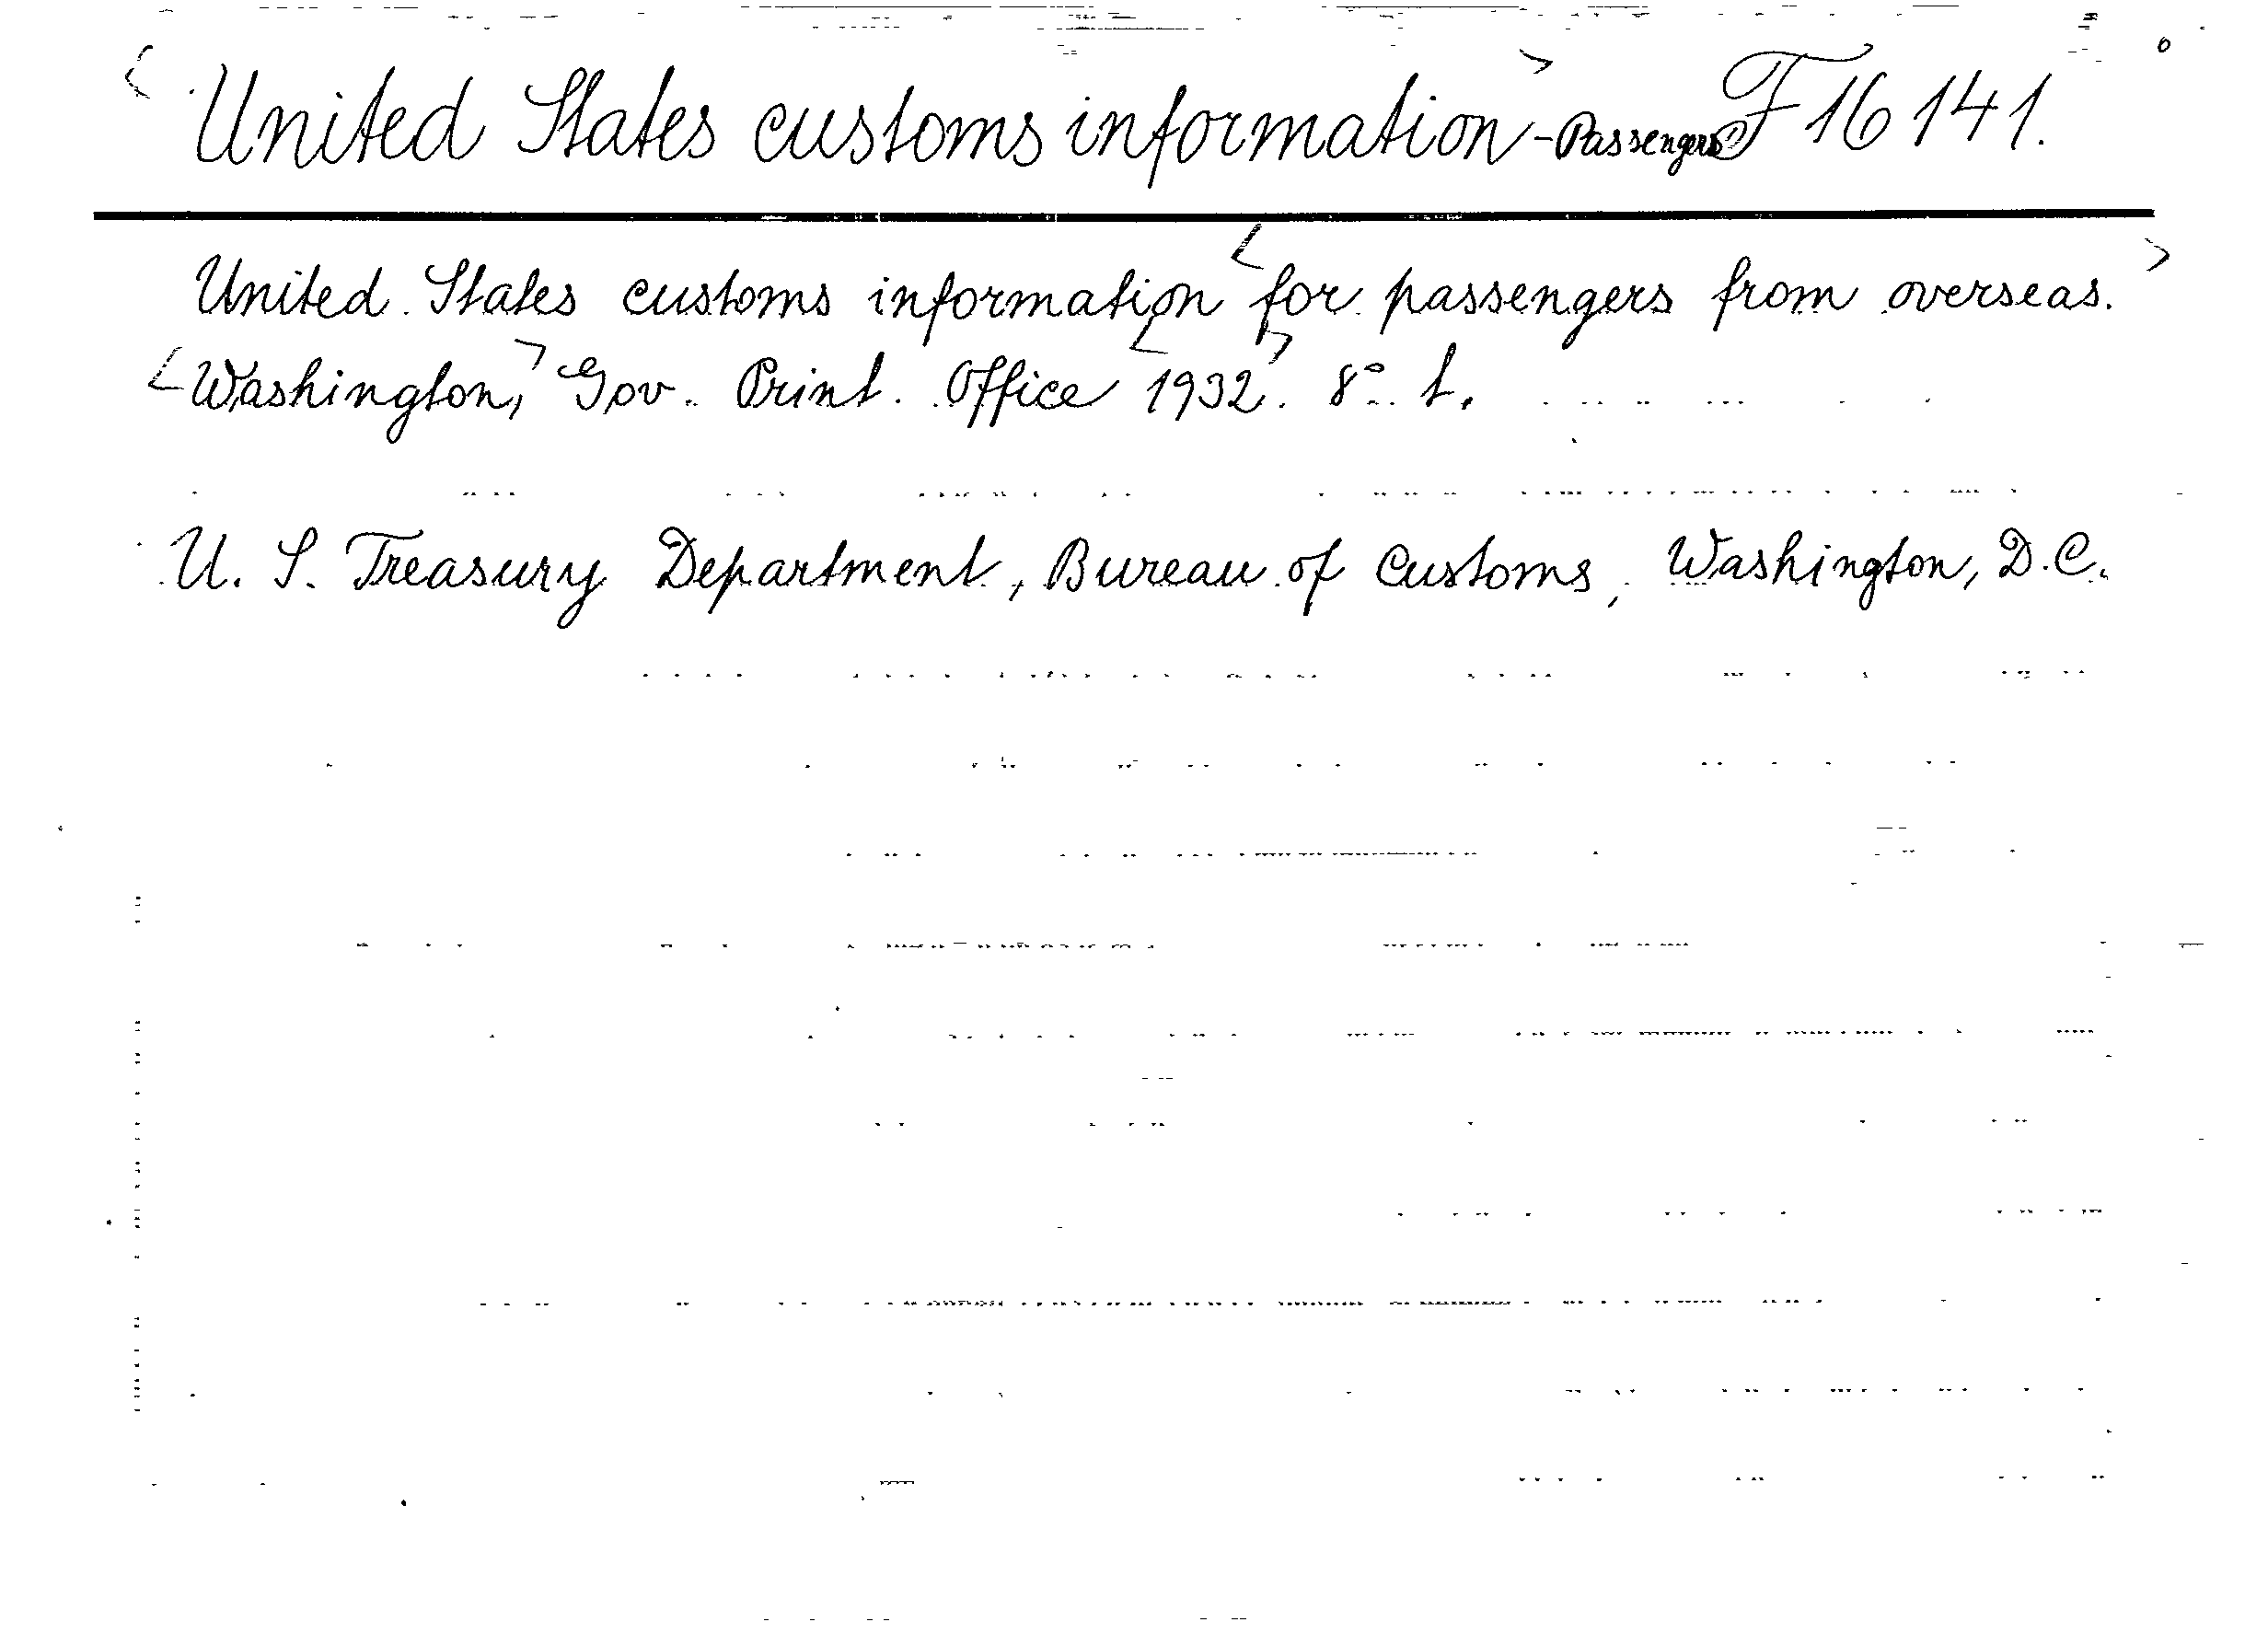 <United States customs information> - Passengers F 16 141.
United States customs information <for passengers from overseas.>
<Washington,> Gov. Print. Office <1932>. 8° t.
U. S. Treasury Department, Bureau of Customs, Washington, D.C.